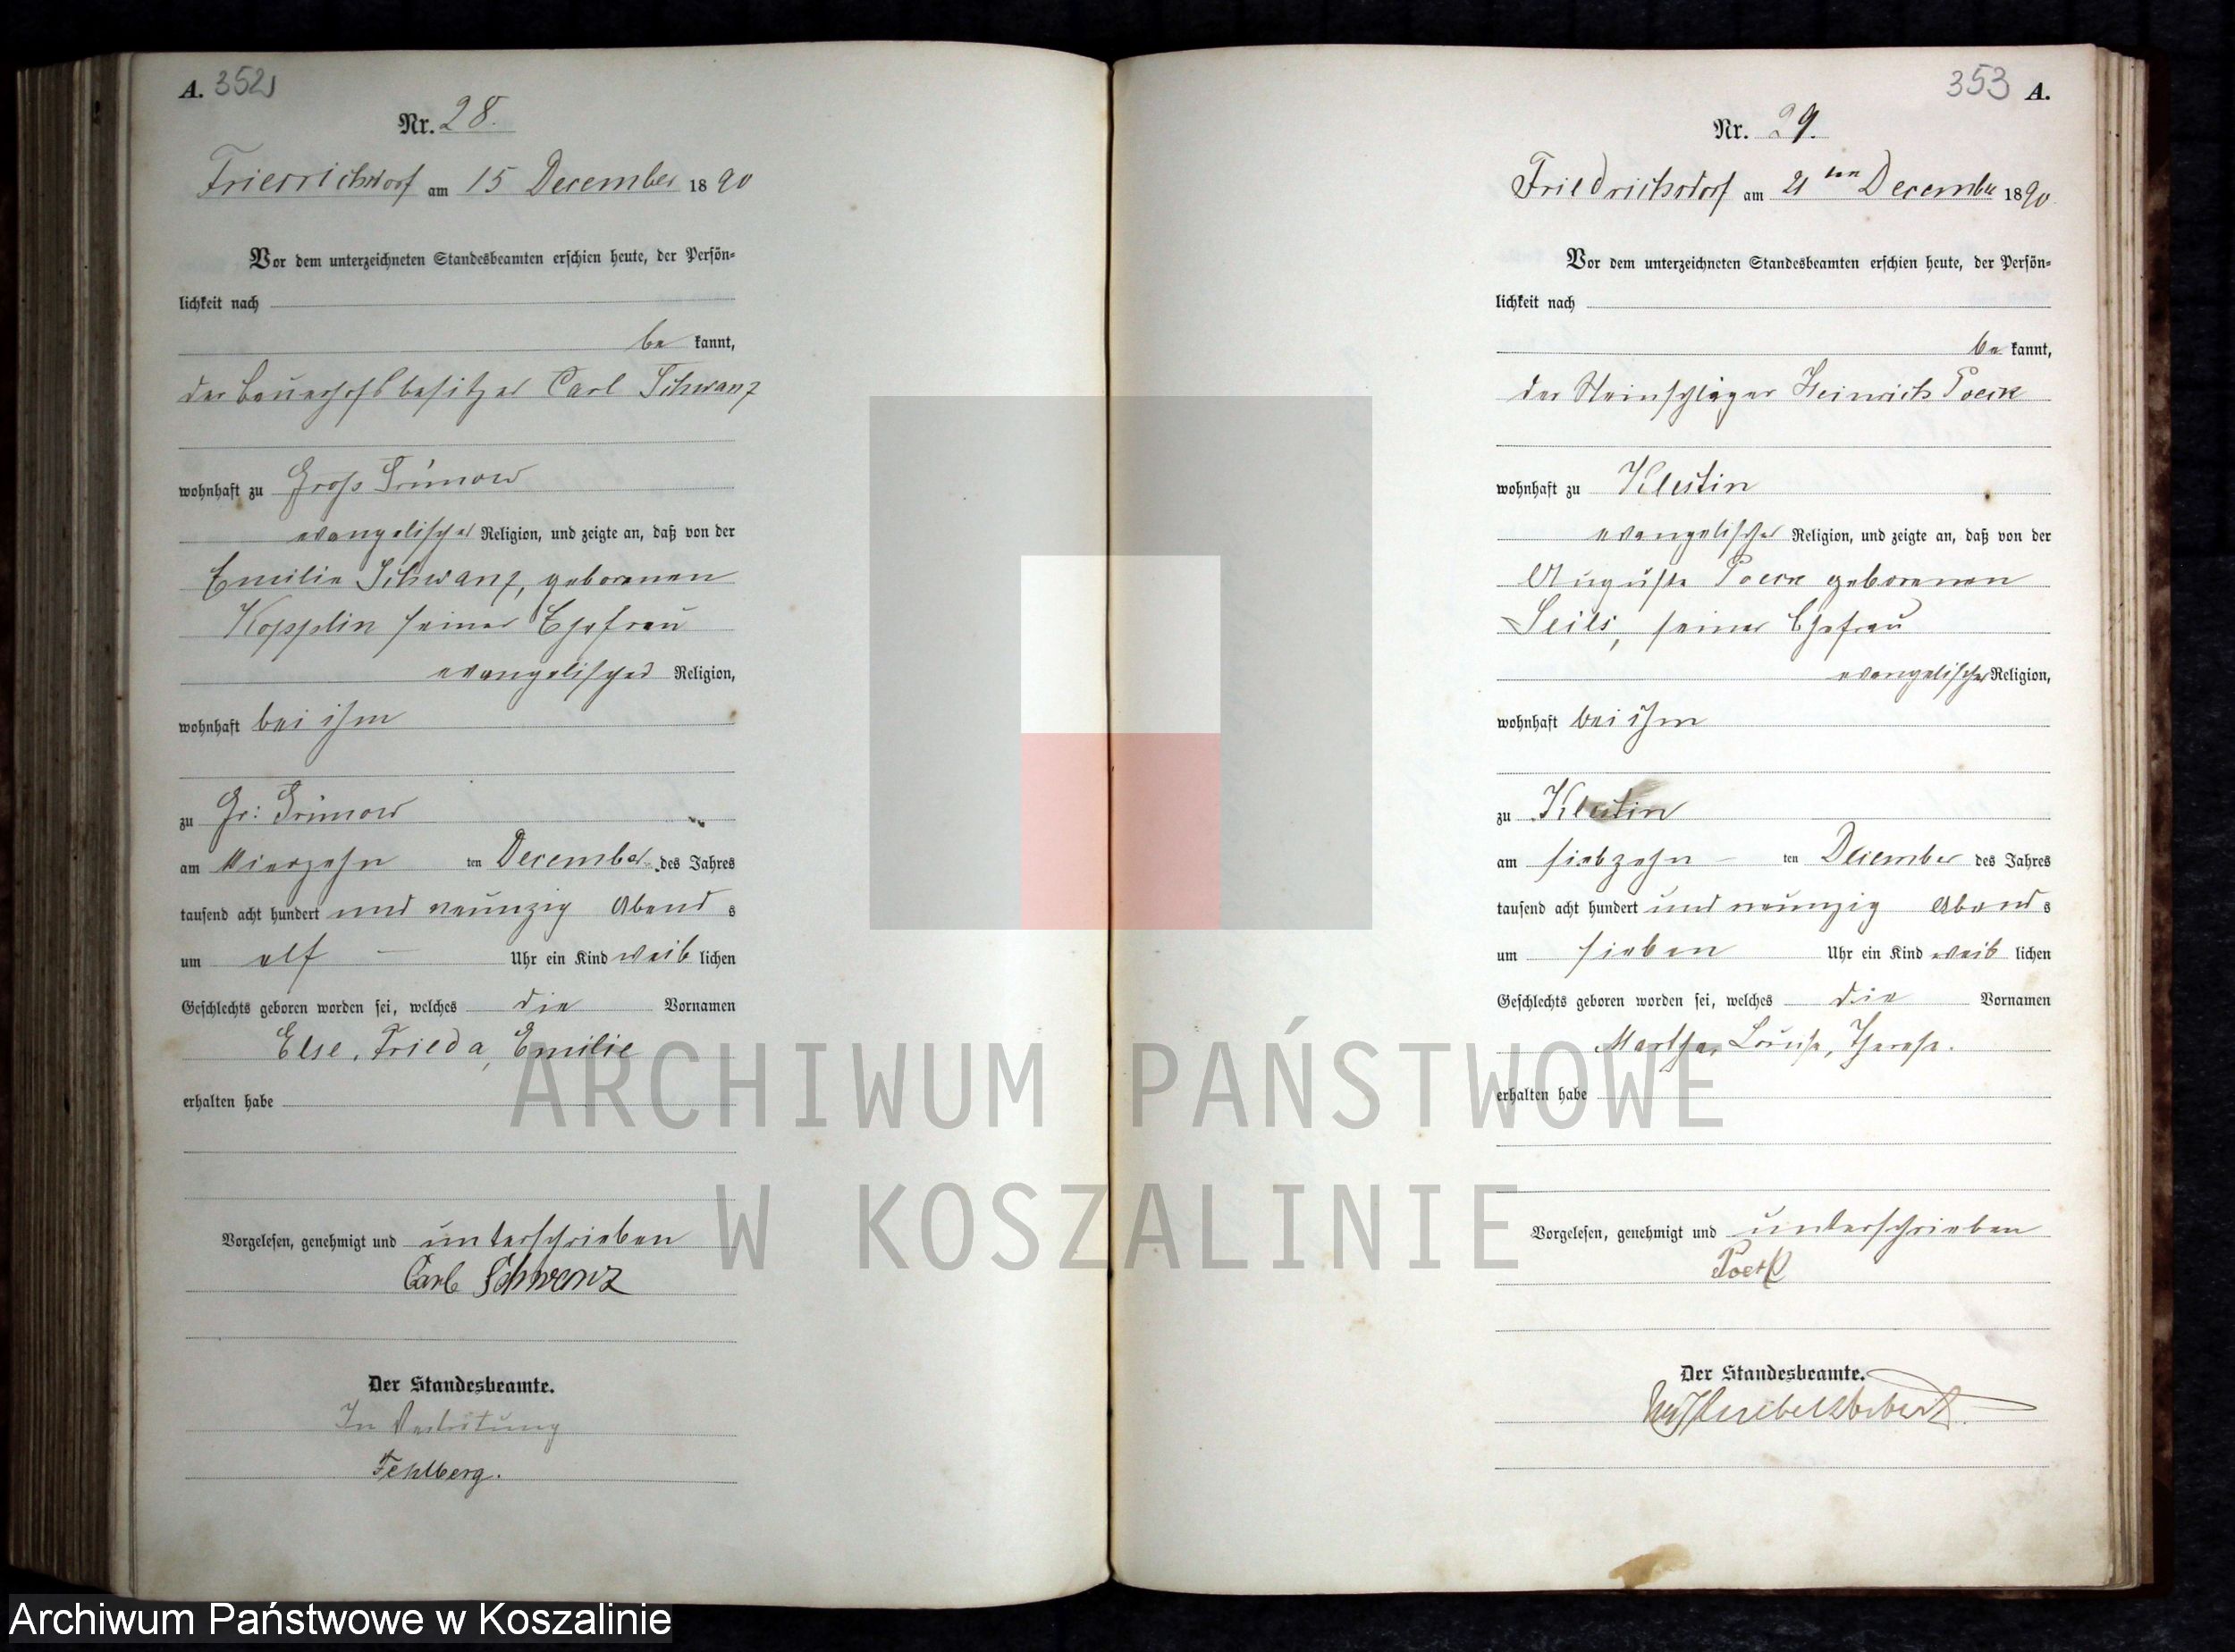 A. 352
Nr. 28.
Friedrichsdorf am 15 December 1890
Vor dem unterzeichneten Standesbeamten erschien heute, der Persön-
lichkeit nach
be kannt,
der Bauerhofsbesitzer Carl Schwanz
wohnhaft zu Groß Grünow
evangelischer Religion, und zeigte an, daß von der
Emilie Schwanz, geborenen
Kopplin seiner Ehefrau
evangelischer Religion,
wohnhaft bei ihm
zu Gr: Grünow
am vierzehn ten December des Jahres
tausend acht hundert und neunzig Abend s
um elf Uhr ein Kind weib lichen
Geschlechts geboren worden sei, welches die Vornamen
Else, Frieda, Emilie
erhalten habe
Vorgelesen, genehmigt und unterschrieben
Carl Schwanz
Der Standesbeamte.
In Vertretung
Fehlberg.
353 A.
Nr. 29.
Friedrichsdorf am 21ten December 1890
Vor dem unterzeichneten Standesbeamten erschien heute, der Persön-
lichkeit nach
be kannt,
der Steinschläger Heinrich Poeck
wohnhaft zu Klestin
evangelischer Religion, und zeigte an, daß von der
Auguste Poeck geborenen
Seils, seiner Ehefrau
evangelischer Religion,
wohnhaft bei ihm
zu Klestin
am siebzehn ten December des Jahres
tausend acht hundert und neunzig Abend s
um sieben Uhr ein Kind weib lichen
Geschlechts geboren worden sei, welches die Vornamen
Martha, Louise, Therese.
erhalten habe
Vorgelesen, genehmigt und unterschrieben
Poeck
Der Standesbeamte.
ARCHIWUM PAŃSTWOWE
W KOSZALINIE
Archiwum Państwowe w Koszalinie